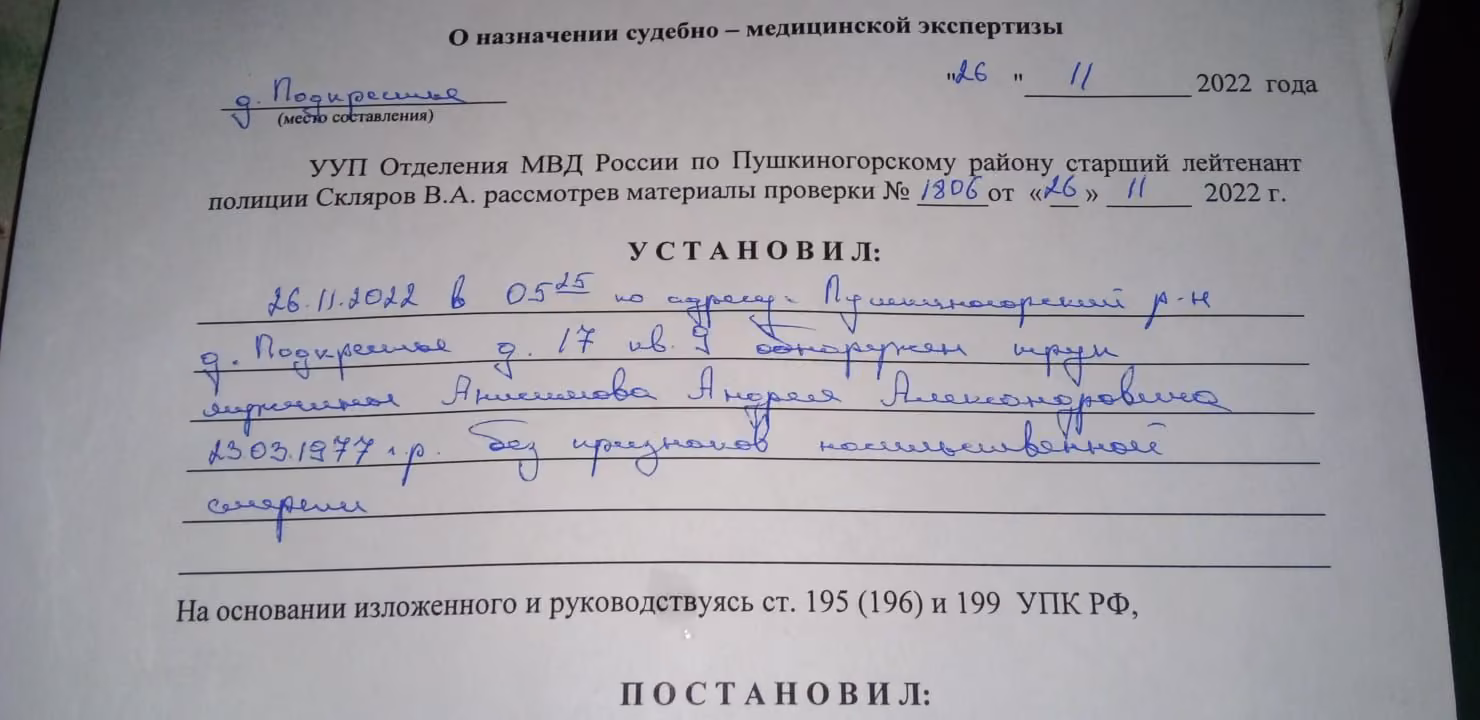 О назначении судебно – медицинской экспертизы
"26 " 11 2022 года
д. Подкрестье
(место составления)
УУП Отделения МВД России по Пушкиногорскому району старший лейтенант
полиции Скляров В.А. рассмотрев материалы проверки № 1806 от «26» 11 2022 г.
УСТАНОВИЛ:
26.11.2022 в 05 25 по адресу: Пушкиногорский р-н
д. Подкрестье д. 17 кв. 9 обнаружен труп
мужчины Анисимова Андрея Александровича
23.03.1977 г.р. без признаков насильственной
смерти
На основании изложенного и руководствуясь ст. 195 (196) и 199 УПК РФ,
ПОСТАНОВИЛ: